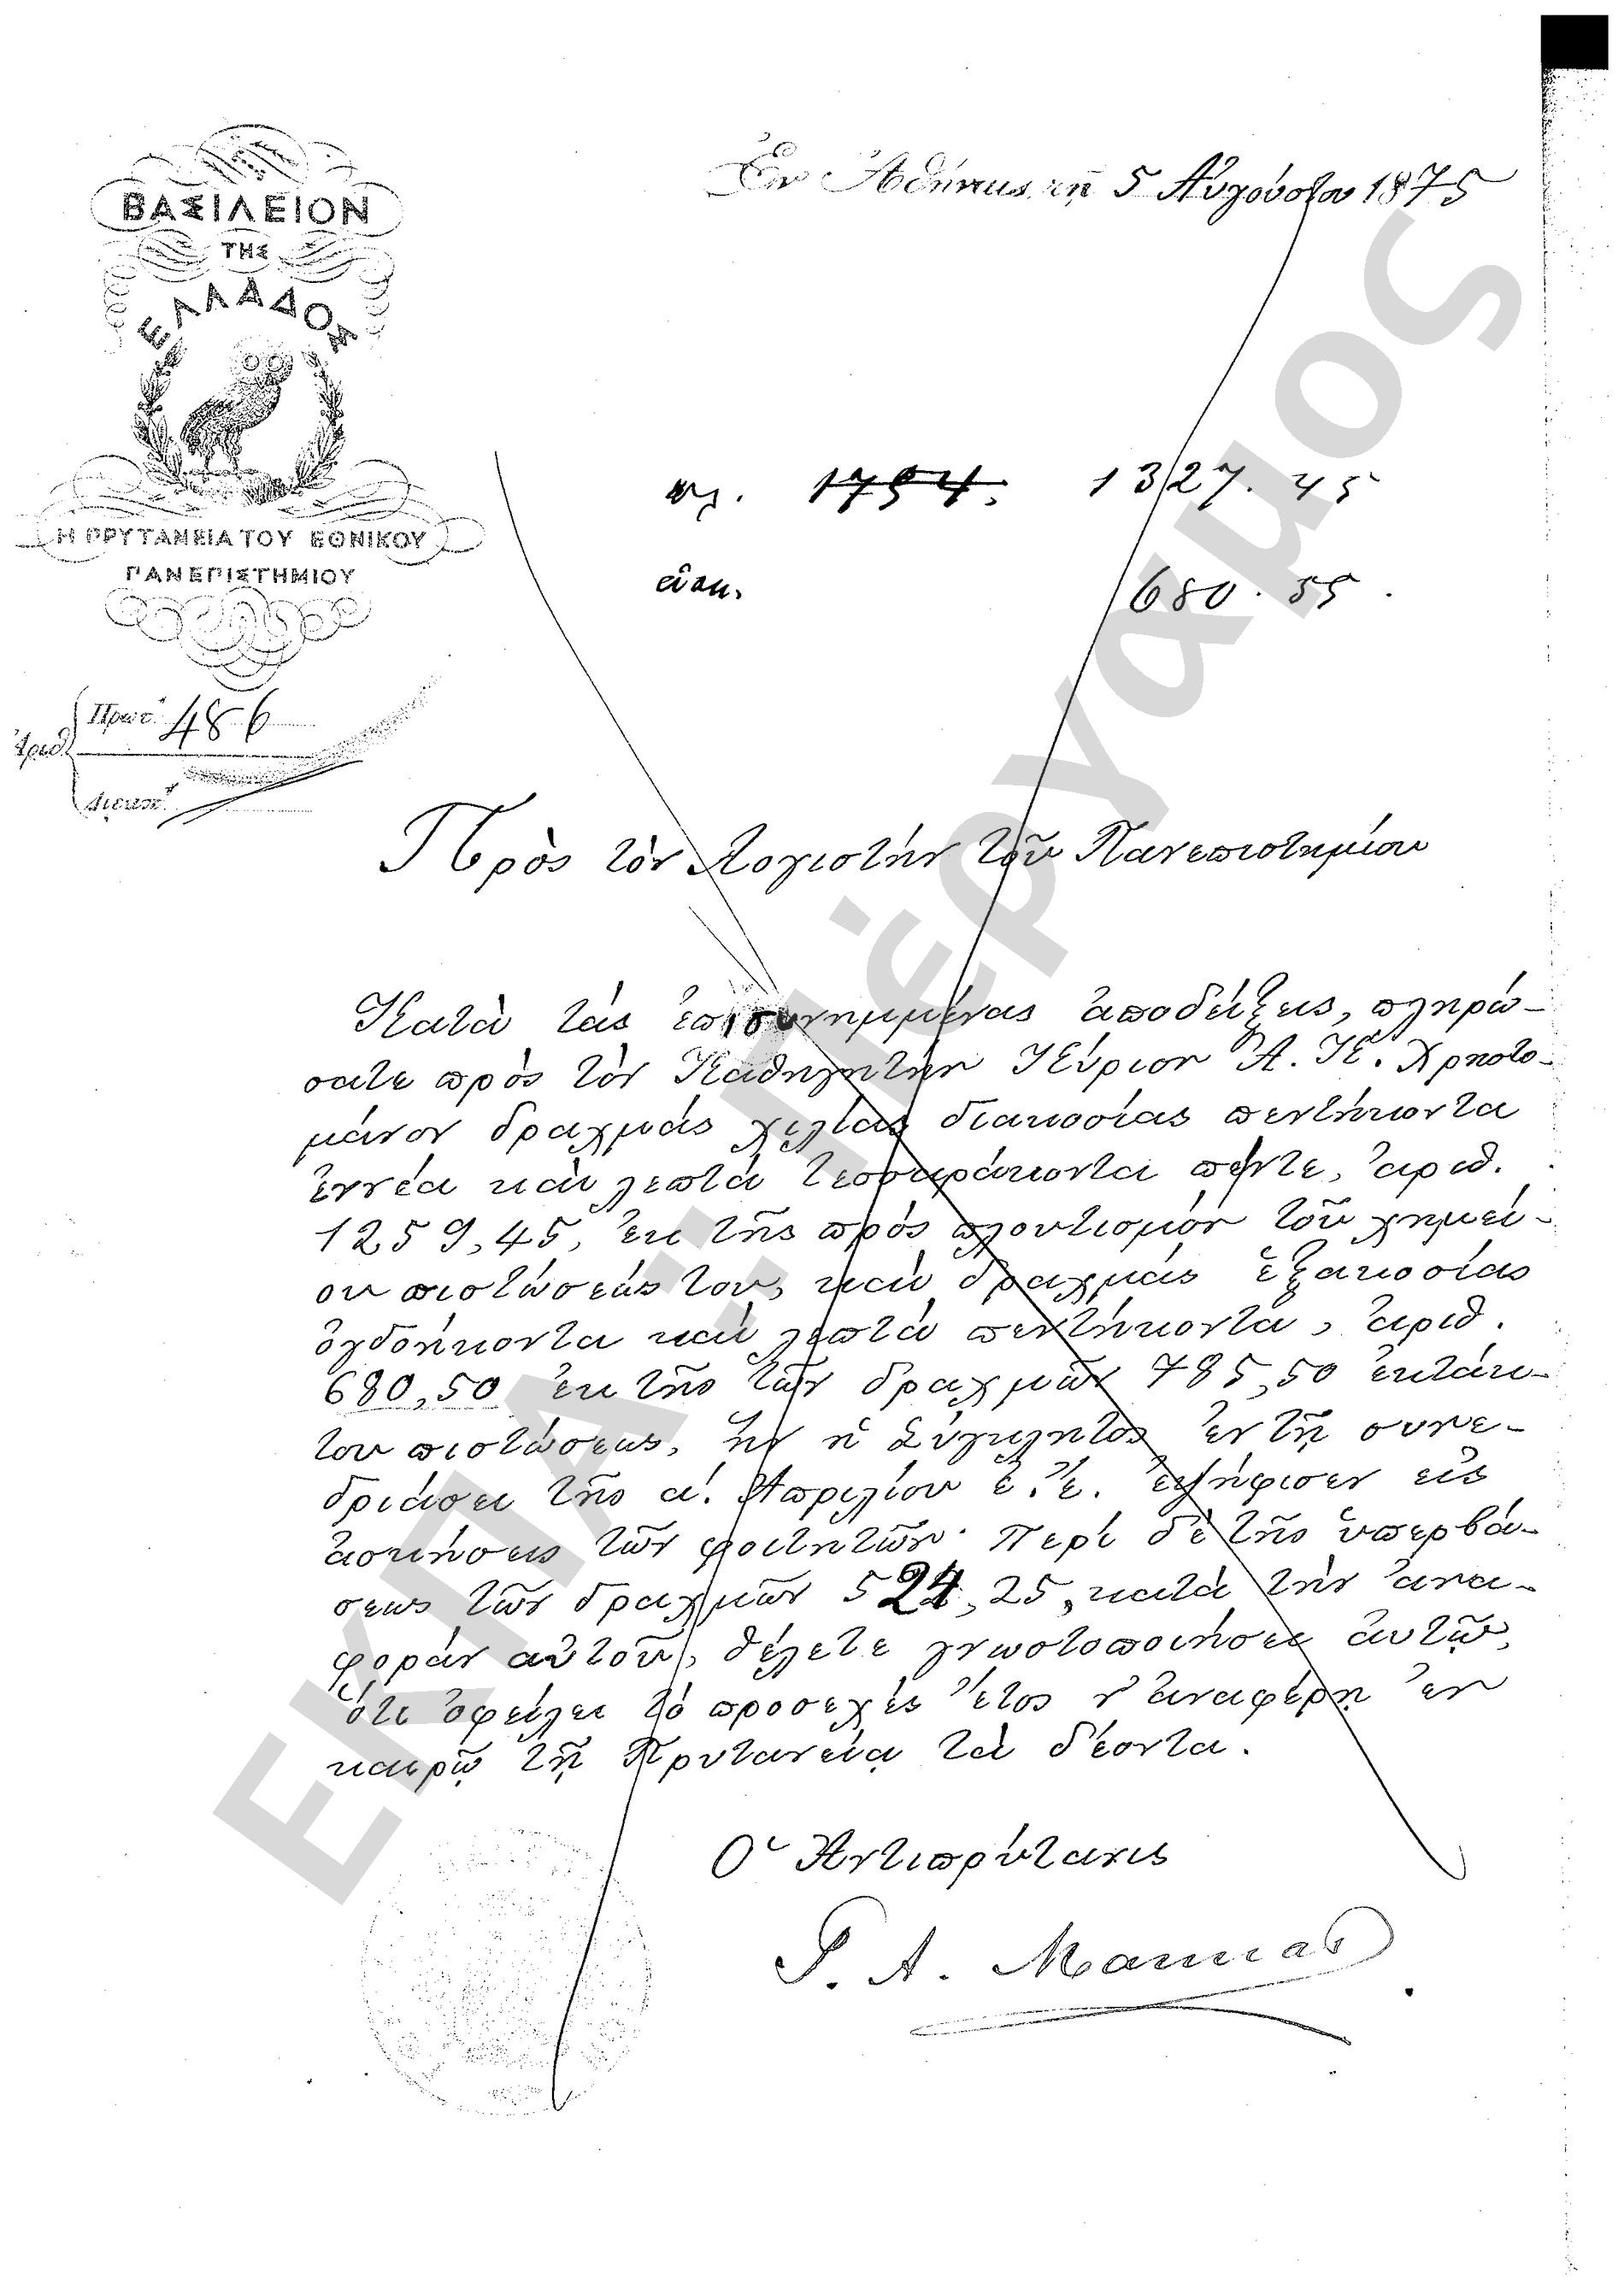 Ἐν Ἀθήναις τῇ 5 Αὐγούστου 1875
ΒΑΣΙΛΕΙΟΝ
ΤΗΣ
ΕΛΛΑΔΟΣ
Η ΠΡΥΤΑΝΕΙΑ ΤΟΥ ΕΘΝΙΚΟΥ
ΠΑΝΕΠΙΣΤΗΜΙΟΥ
πλ. 1754. 1327.45
680.55.
Ἀριθ.
Πρωτ. 486
Διεκπ.
Πρὸς τὸν Λογιστὴν τοῦ Πανεπιστημίου
Κατὰ τὰς ἐπισυνημμένας ἀποδείξεις, πληρώ-
σατε πρὸς τὸν Καθηγητὴν Κύριον Ἀ. Κ. Χρηστο-
μάνον δραχμὰς χιλίας διακοσίας πεντήκοντα
ἐννέα καὶ λεπτὰ τεσσαράκοντα πέντε, ἀριθ.
1259,45, ἐκ τῆς πρὸς πλουτισμὸν τοῦ χημεί-
ου πιστώσεώς του, καὶ δραχμὰς ἑξακοσίας
ὀγδοήκοντα καὶ λεπτὰ πεντήκοντα, ἀριθ.
680,50 ἐκ τῆς τῶν δραχμῶν 785,50 ἐκτάκ-
του πιστώσεως, ἣν ἡ Σύγκλητος ἐν τῇ συνε-
δριάσει τῆς α΄. Ἀπριλίου ἐ. ἔ. ἐψήφισεν εἰς
ἀσκήσεις τῶν φοιτητῶν· Περὶ δὲ τῆς ὑπερβά-
σεως τῶν δραχμῶν 524,25, κατὰ τὴν ἀνα-
φορὰν αὐτοῦ, θέλετε γνωστοποιήσει αὐτῷ,
ὅτι ὀφείλει τὸ προσεχὲς ἔτος ν' ἀναφέρῃ ἐν
καιρῷ τῇ Πρυτανείᾳ τὰ δέοντα.
Ὁ Ἀντιπρύτανις
ΕΚΠΑ...Πέργαμος